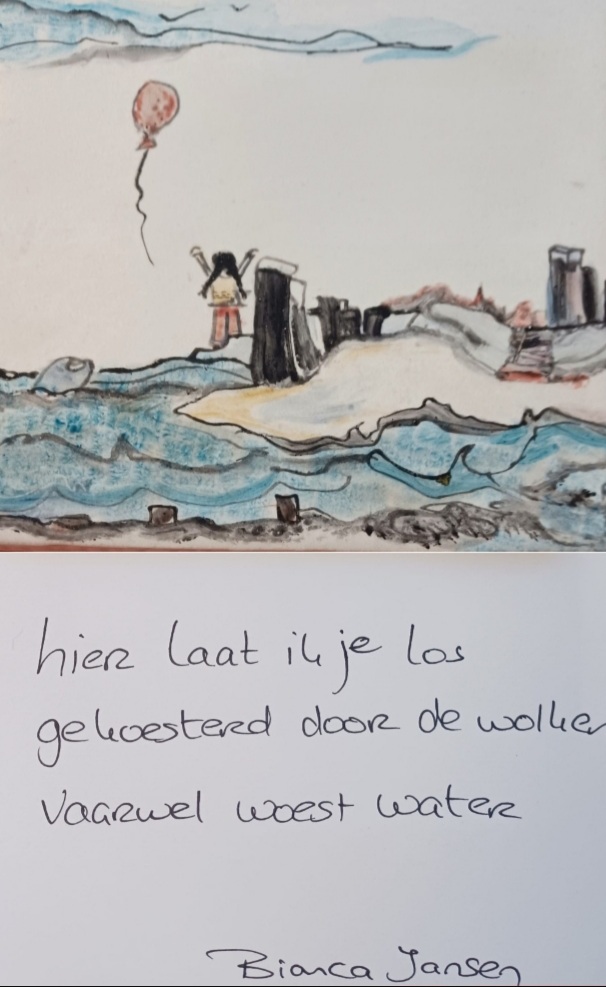 hier laat ik je los
gekoesterd door de wolken
Vaarwel woest water
Bianca Jansen